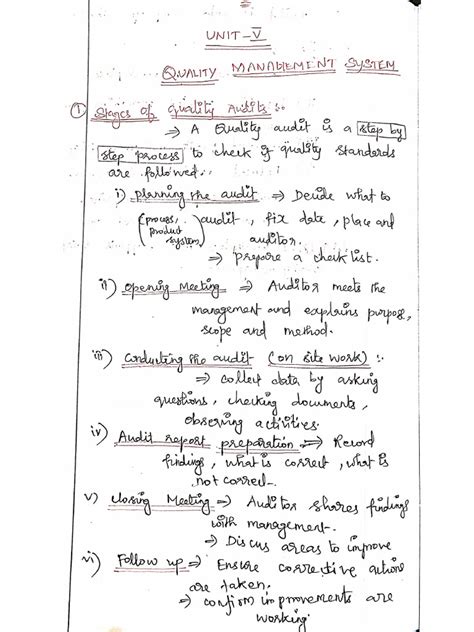 UNIT-V
QUALITY MANAGEMENT SYSTEM
① Stages of Quality Audits :-
⇒ A Quality audit is a step by
step process to check if quality standards
are followed.
i) planning the audit ⇒ Decide what to
(process, product system) audit, fix date, place and
auditor.
⇒ prepare a check list.
ii) Opening Meeting ⇒ Auditor meets the
management and explains purpose,
scope and method.
iii) Conducting the audit (on site work) :-
⇒ collect data by asking
questions, checking documents,
observing activities.
iv) Audit report preparation ⇒ Record
findings, what is correct, what is
not correct.
v) Closing Meeting ⇒ Auditor shares findings
with management.
⇒ Discus areas to improve
vi) Follow up ⇒ Ensure corrective actions
are taken.
⇒ confirm improvements are
working.